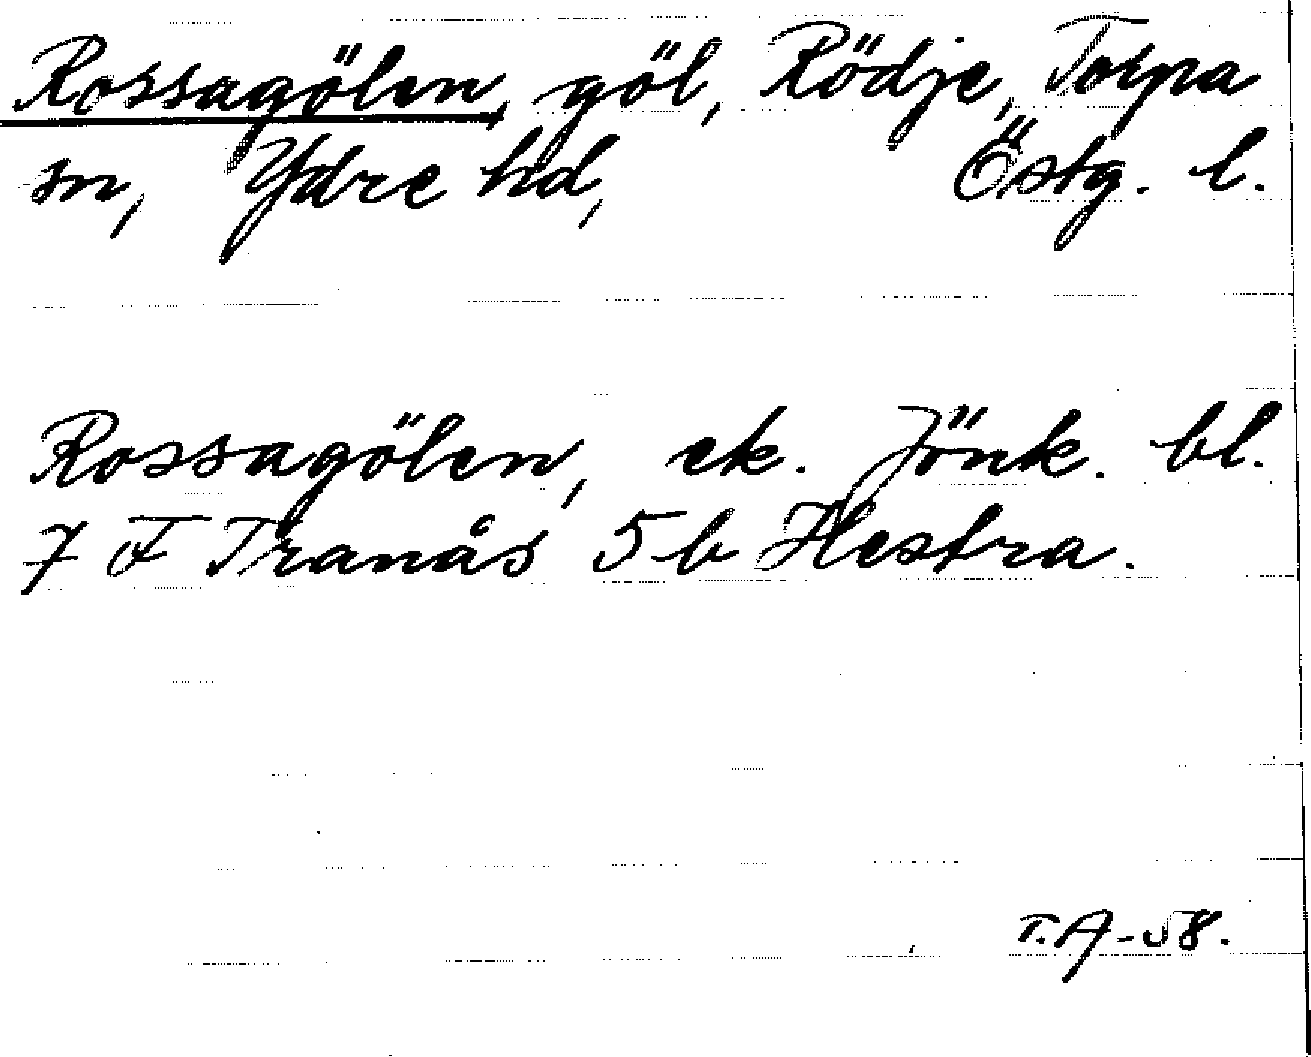 Rossagölen, göl, Rödje, Torpa
sn, Ydre hd, Östg. l.
Rossagölen, ek. Jönk. bl.
7 F Tranås 5 b Hestra.
T.A-58.